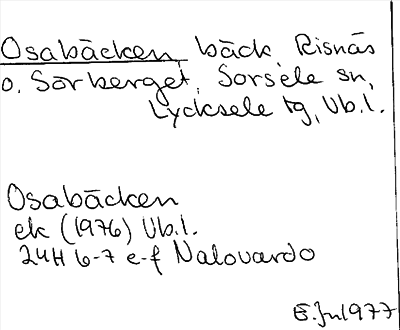 Osabäcken, bäck, Risnäs
o. Sörberget, Sorsele sn,
Lycksele tg, Vb.l.
Osabäcken
ek (1976) Vb.l.
24H 6-7 e-f Nalovardo
E.Jn 1977